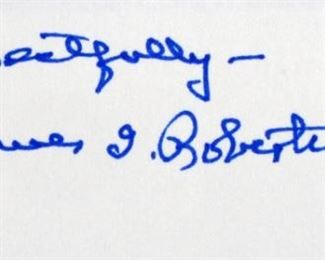 ectfully —
mes I. Roberts